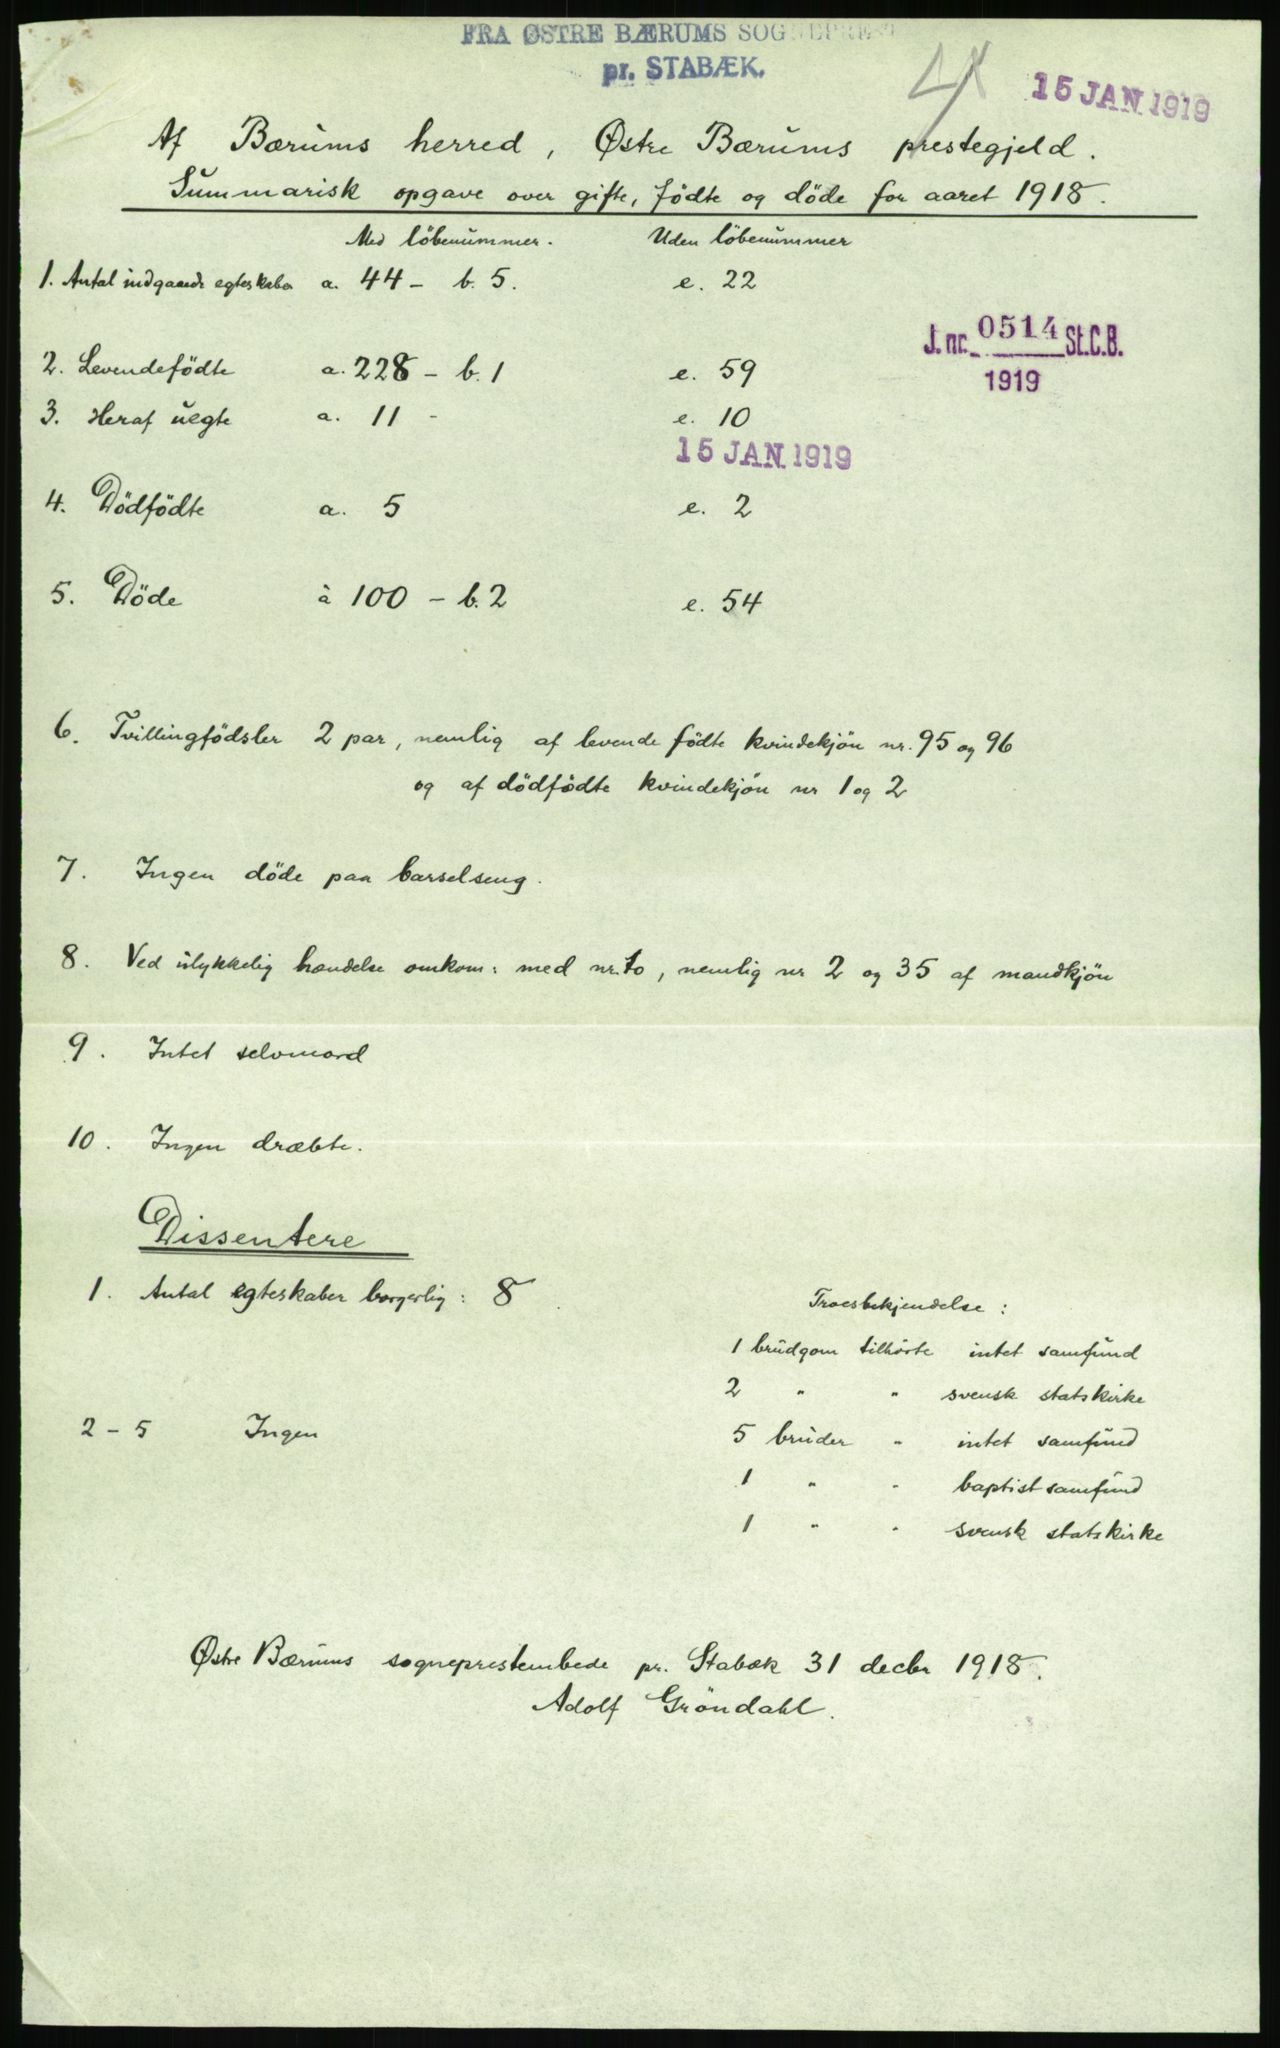 FRA ØSTRE BÆRUMS SOGNEPREST
pr. STABÆK.
15 JAN 1919
Af Bærums herred, Østre Bærums prestegjeld.
Summarisk opgave over gifte, fødte og döde for aaret 1918.
Med löbenummer. Uden löbenummer
1. Antal indgaaede egteskaber a. 44 - b. 5. e. 22
J. nr. 0514 St.C.B.
1919
2. Levendefödte a. 228 - b. 1 e. 59
3. Heraf uegte a. 11 - e. 10
15 JAN 1919
4. Dödfödte a. 5 e. 2
5. Döde a 100 - b. 2 e. 54
6. Tvillingfödsler 2 par, nemlig af levende födte kvindekjön nr. 95 og 96
og af dödfödte kvindekjön nr 1 og 2
7. Ingen döde paa barselseng.
8. Ved ulykkelig hændelse omkom: med nr. to, nemlig nr 2 og 35 af mandkjön
9. Intet selvmord
10. Ingen dræbte.
Dissentere
1. Antal egteskaber borgerlig: 8
Troesbekjendelse:
1 brudgom tilhörte intet samfund
2 " " svensk statskirke
2 - 5 Ingen
5 bruder " intet samfund
1 " " baptistsamfund
1 " " svensk statskirke
Østre Bærums sogneprestembede pr. Stabæk 31 decbr 1918.
Adolf Gröndahl.